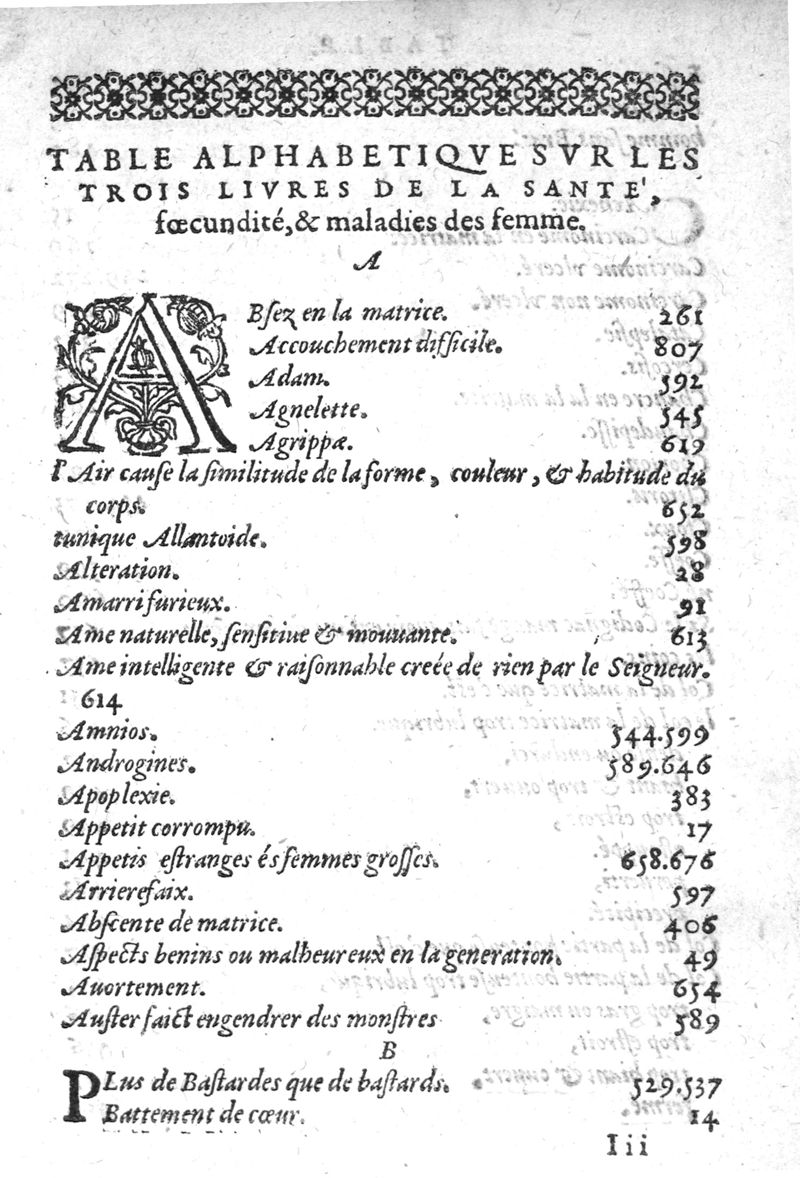 TABLE ALPHABETIQVE SVR LES
TROIS LIVRES DE LA SANTE',
fœcundité, & maladies des femme.
A
ABſez en la matrice. 261
Accouchement difficile. 807
Adam. 592
Agnelette. 545
Agrippæ. 619
l'Air cauſe la ſimilitude de la forme, couleur, & habitude du
corps. 652
tunique Allantoide. 598
Alteration. 28
Amarri furieux. 91
Ame naturelle, ſenſitiue & mouuante. 613
Ame intelligente & raiſonnable creée de rien par le Seigneur.
614
Amnios. 544.599
Androgines. 589.646
Apoplexie. 383
Appetit corrompu. 17
Appetis eſtranges és femmes groſſes. 658.676
Arrierefaix. 597
Abſcente de matrice. 406
Aſpects benins ou malheureux en la generation. 49
Auortement. 654
Auſter faict engendrer des monſtres 589
B
PLus de Baſtardes que de baſtards. 529.537
Battement de cœur. 14
Iii